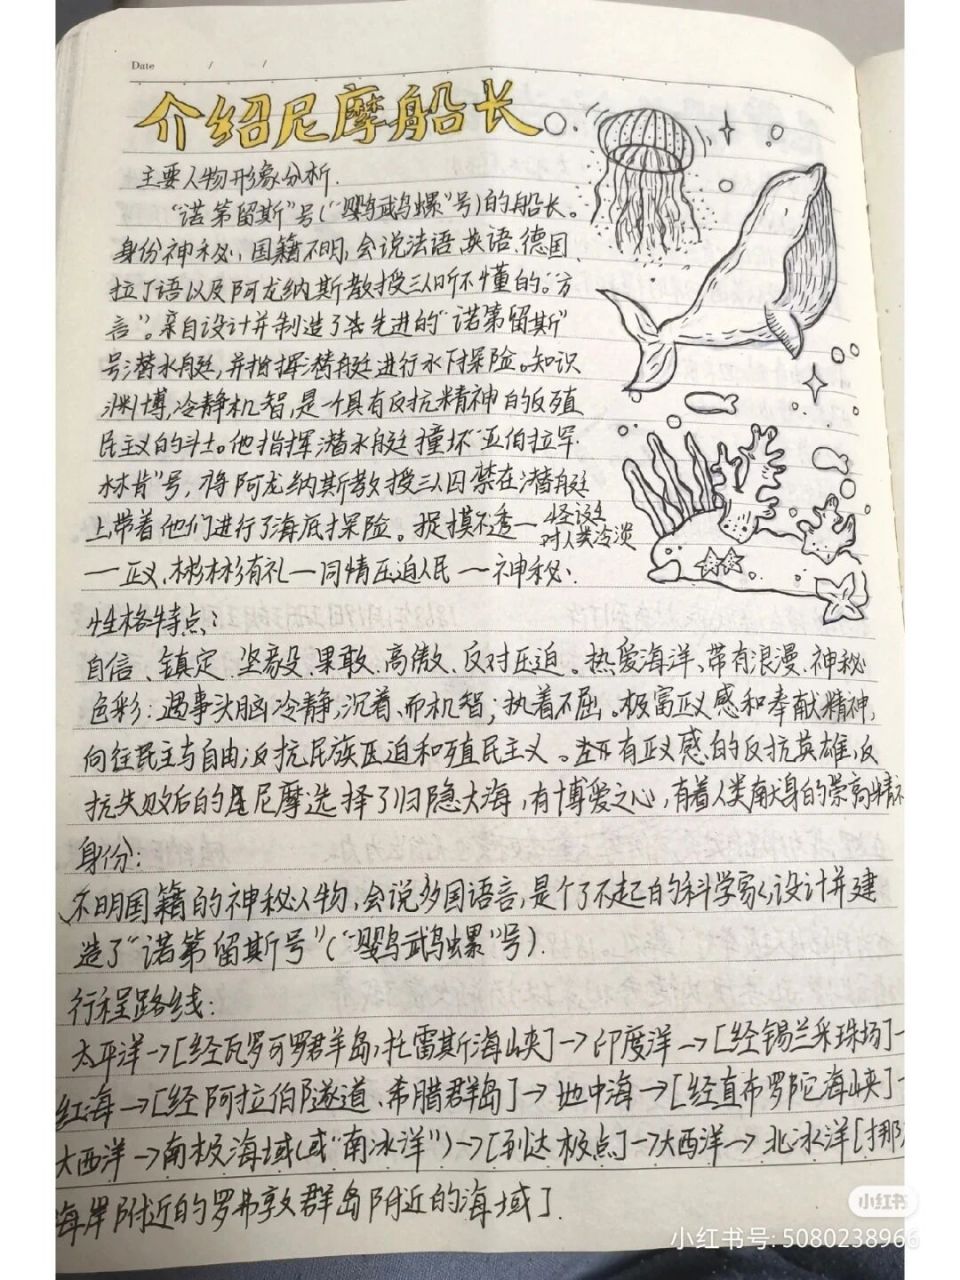 Date / /
介绍尼摩船长
主要人物形象分析.
"诺第留斯"号("鹦鹉螺"号)的船长。
身份神秘,国籍不明,会说法语、英语、德国、
拉丁语以及阿龙纳斯教授三人听不懂的"方
言"。亲自设计并制造了先进的"诺第留斯"
号潜水艇,并指挥潜艇进行水下探险。知识
渊博,冷静机智,是一个具有反抗精神的反殖
民主义的斗士。他指挥潜水艇撞坏"亚伯拉罕·
林肯"号,将阿龙纳斯教授三人囚禁在潜艇
上带着他们进行了海底探险。捉摸不透—怪诞
对人类冷淡
—正义,彬彬有礼—同情压迫人民—神秘.
性格特点:
自信、镇定、坚毅、果敢、高傲、反对压迫。热爱海洋、带有浪漫、神秘
色彩:遇事头脑冷静,沉着、而机智;执着不屈。极富正义感和奉献精神,
向往民主与自由;反抗民族压迫和殖民主义。有正义感的反抗英雄,反
抗失败后的尼摩选择了归隐大海,有博爱之心,有着人类献身的崇高情
身份:
不明国籍的神秘人物,会说多国语言,是个了不起的科学家,设计并建
造了"诺第留斯号"("鹦鹉螺"号).
行程路线:
太平洋→[经瓦罗可罗群岛,托雷斯海峡]→印度洋→[经锡兰采珠场]→
红海→[经阿拉伯隧道、希腊群岛]→地中海→[经直布罗陀海峡]→
大西洋→南极海域(或"南冰洋")→[到达极点]→大西洋→北冰洋[挪
海岸附近的罗弗敦群岛附近的海域].
小红书
小红书号: 5080238966